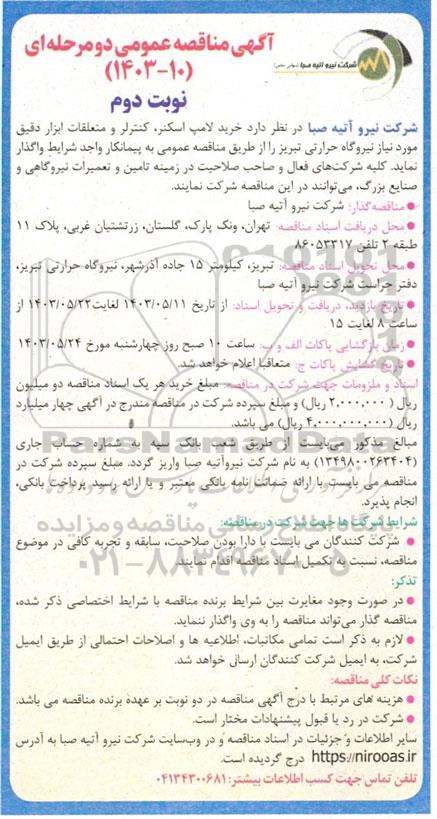 شرکت نیرو آتیه صبا (سهامی خاص)
آگهی مناقصه عمومی دو مرحله‌ای
(۱۰-۱۴۰۳)
نوبت دوم
شرکت نیرو آتیه صبا در نظر دارد خرید لامپ اسکنر، کنترلر و متعلقات ابزار دقیق
مورد نیاز نیروگاه حرارتی تبریز را از طریق مناقصه عمومی به پیمانکار واجد شرایط واگذار
نماید. کلیه شرکت‌های فعال و صاحب صلاحیت در زمینه تامین و تعمیرات نیروگاهی و
صنایع بزرگ، می‌توانند در این مناقصه شرکت نمایند.
● مناقصه‌گذار: شرکت نیرو آتیه صبا
● محل دریافت اسناد مناقصه: تهران، ونک پارک، گلستان، زرتشتیان غربی، پلاک ۱۱
طبقه ۲ تلفن ۸۶۰۵۳۳۱۷
● محل تحویل اسناد مناقصه: تبریز، کیلومتر ۱۵ جاده آذرشهر، نیروگاه حرارتی تبریز،
دفتر حراست شرکت نیرو آتیه صبا
● تاریخ بازدید، دریافت و تحویل اسناد: از تاریخ ۱۴۰۳/۰۵/۱۱ لغایت ۱۴۰۳/۰۵/۲۲ از
ساعت ۸ لغایت ۱۵
● زمان بازگشایی پاکات الف و ب: ساعت ۱۰ صبح روز چهارشنبه مورخ ۱۴۰۳/۰۵/۲۴
● تاریخ گشایش پاکات ج: متعاقبا اعلام خواهد شد.
اسناد و ملزومات جهت شرکت در مناقصه: مبلغ خرید هر یک اسناد مناقصه دو میلیون
ریال (۲,۰۰۰,۰۰۰ ریال) و مبلغ سپرده شرکت در مناقصه مندرج در آگهی چهار میلیارد
ریال (۴,۰۰۰,۰۰۰,۰۰۰ ریال) می باشد.
مبالغ مذکور می‌بایست از طریق شعب بانک سپه به شماره حساب جاری
(۱۳۴۹۸۰۰۲۶۳۴۰۴) به نام شرکت نیروآتیه صبا واریز گردد. مبلغ سپرده شرکت در
مناقصه می بایست با ارائه ضمانت نامه بانکی معتبر و یا ارائه رسید پرداخت بانکی،
انجام پذیرد.
شرایط شرکت‌ها جهت شرکت در مناقصه:
● شرکت کنندگان می بایست با دارا بودن صلاحیت، سابقه و تجربه کافی در موضوع
مناقصه، نسبت به تکمیل اسناد مناقصه اقدام نمایند.
تذکر:
● در صورت وجود مغایرت بین شرایط برنده مناقصه با شرایط اختصاصی ذکر شده،
مناقصه گذار می‌تواند مناقصه را به وی واگذار ننماید.
● لازم به ذکر است تمامی مکاتبات، اطلاعیه ها و اصلاحات احتمالی از طریق ایمیل
شرکت، به ایمیل شرکت کنندگان ارسال خواهد شد.
نکات کلی مناقصه:
● هزینه های مرتبط با درج آگهی مناقصه در دو نوبت بر عهده برنده مناقصه می باشد.
● شرکت در رد یا قبول پیشنهادات مختار است.
سایر اطلاعات و جزئیات در اسناد مناقصه و در وب‌سایت شرکت نیرو آتیه صبا به آدرس
https://nirooas.ir درج گردیده است.
تلفن تماس جهت کسب اطلاعات بیشتر: ۰۴۱۳۴۳۰۰۶۸۱
ParsNamadData
۰۲۱-۸۸۳۴۹۶۷۰-۵